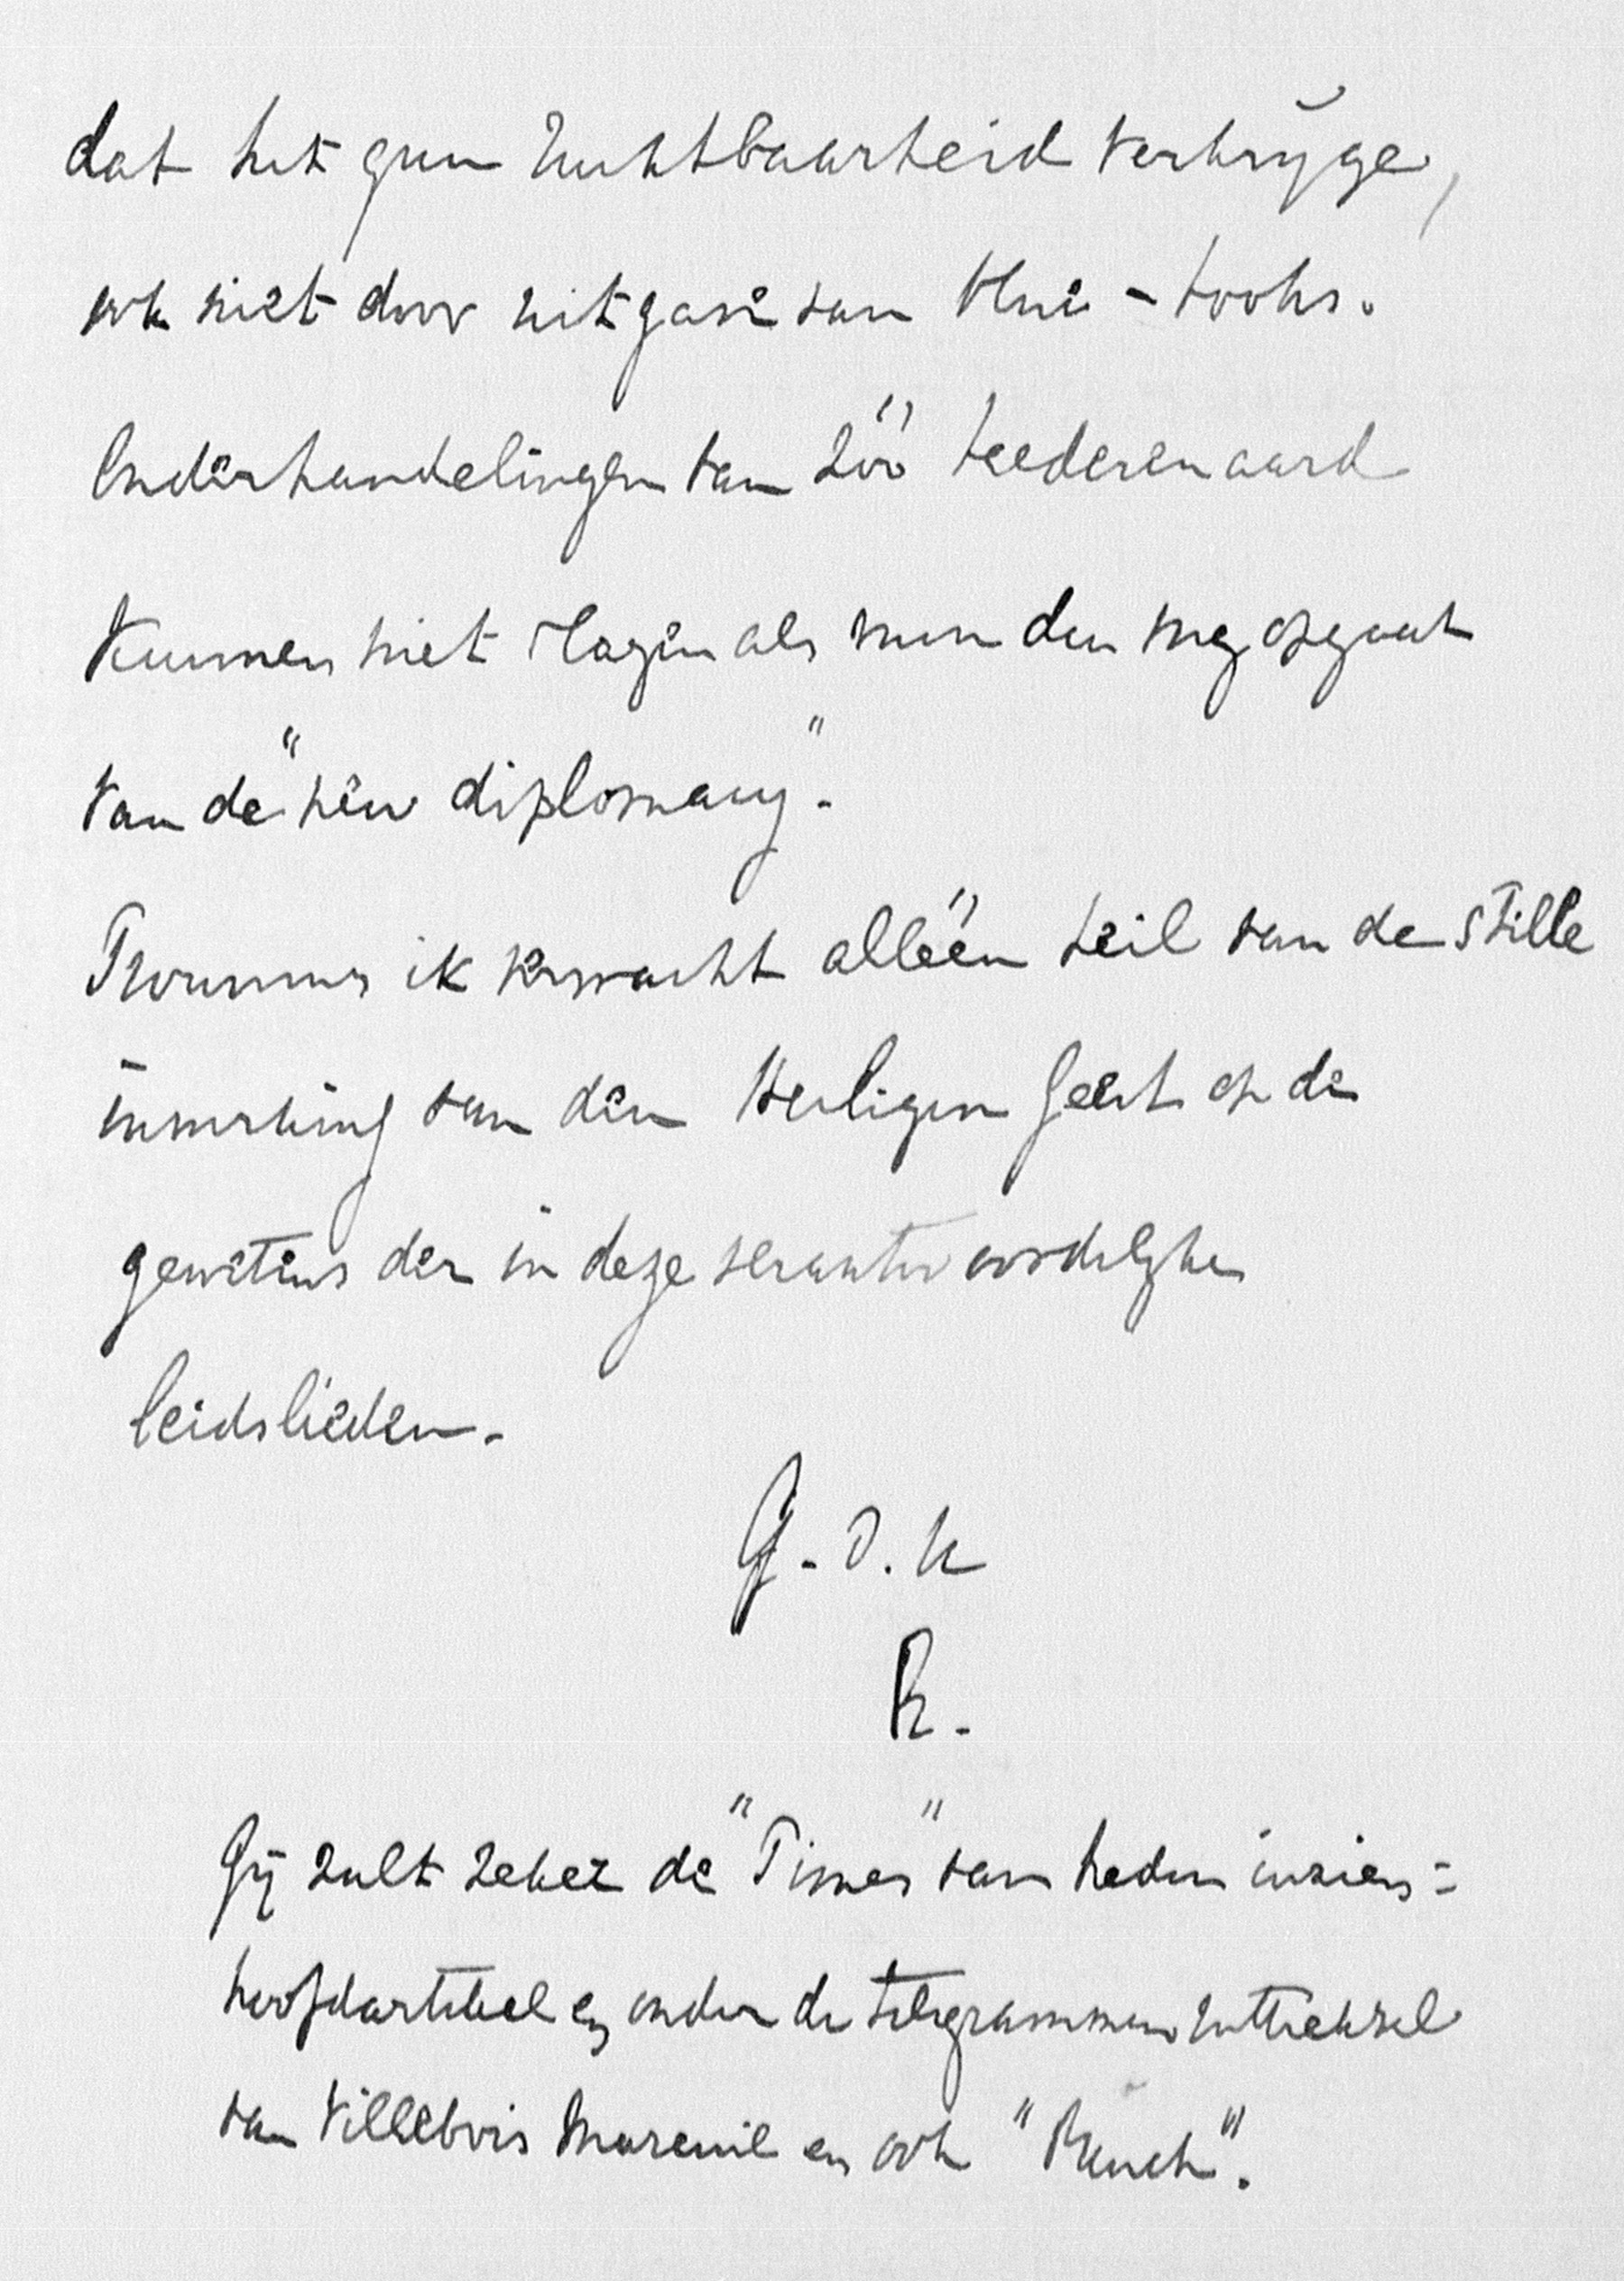 dat het geen ruchtbaarheid verkrijge,
ook niet door uitgave van blue-books.
Onderhandelingen van zóó teederen aard
kunnen niet slagen als men den weg opgaat
van de "new diplomacy".
Trouwens ik verwacht alléén heil van de stille
inwerking van den Heiligen Geest op de
gewetens der in deze verantwoordelyke
leidslieden.
G. v. h
R.
Gij zult zeker de "Times" van heden inzien:
hoofdartikel en onder de telegrammen uittreksel
van Villebois Mareuil en ook "Punch".